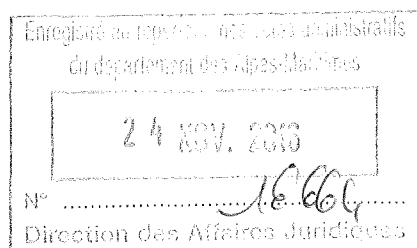 Enregistré au répertoire des actes administratifs
du département des Alpes-Maritimes
24 NOV. 2016
N°
Direction des Affaires Juridiques